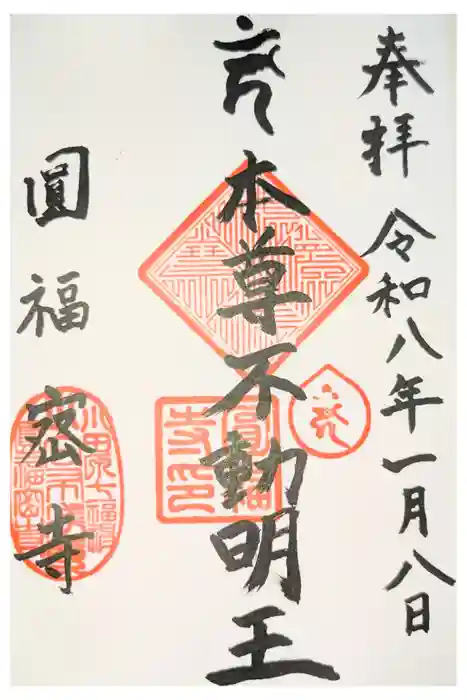 奉拝 令和八年一月八日
本尊不動明王
圓福密寺